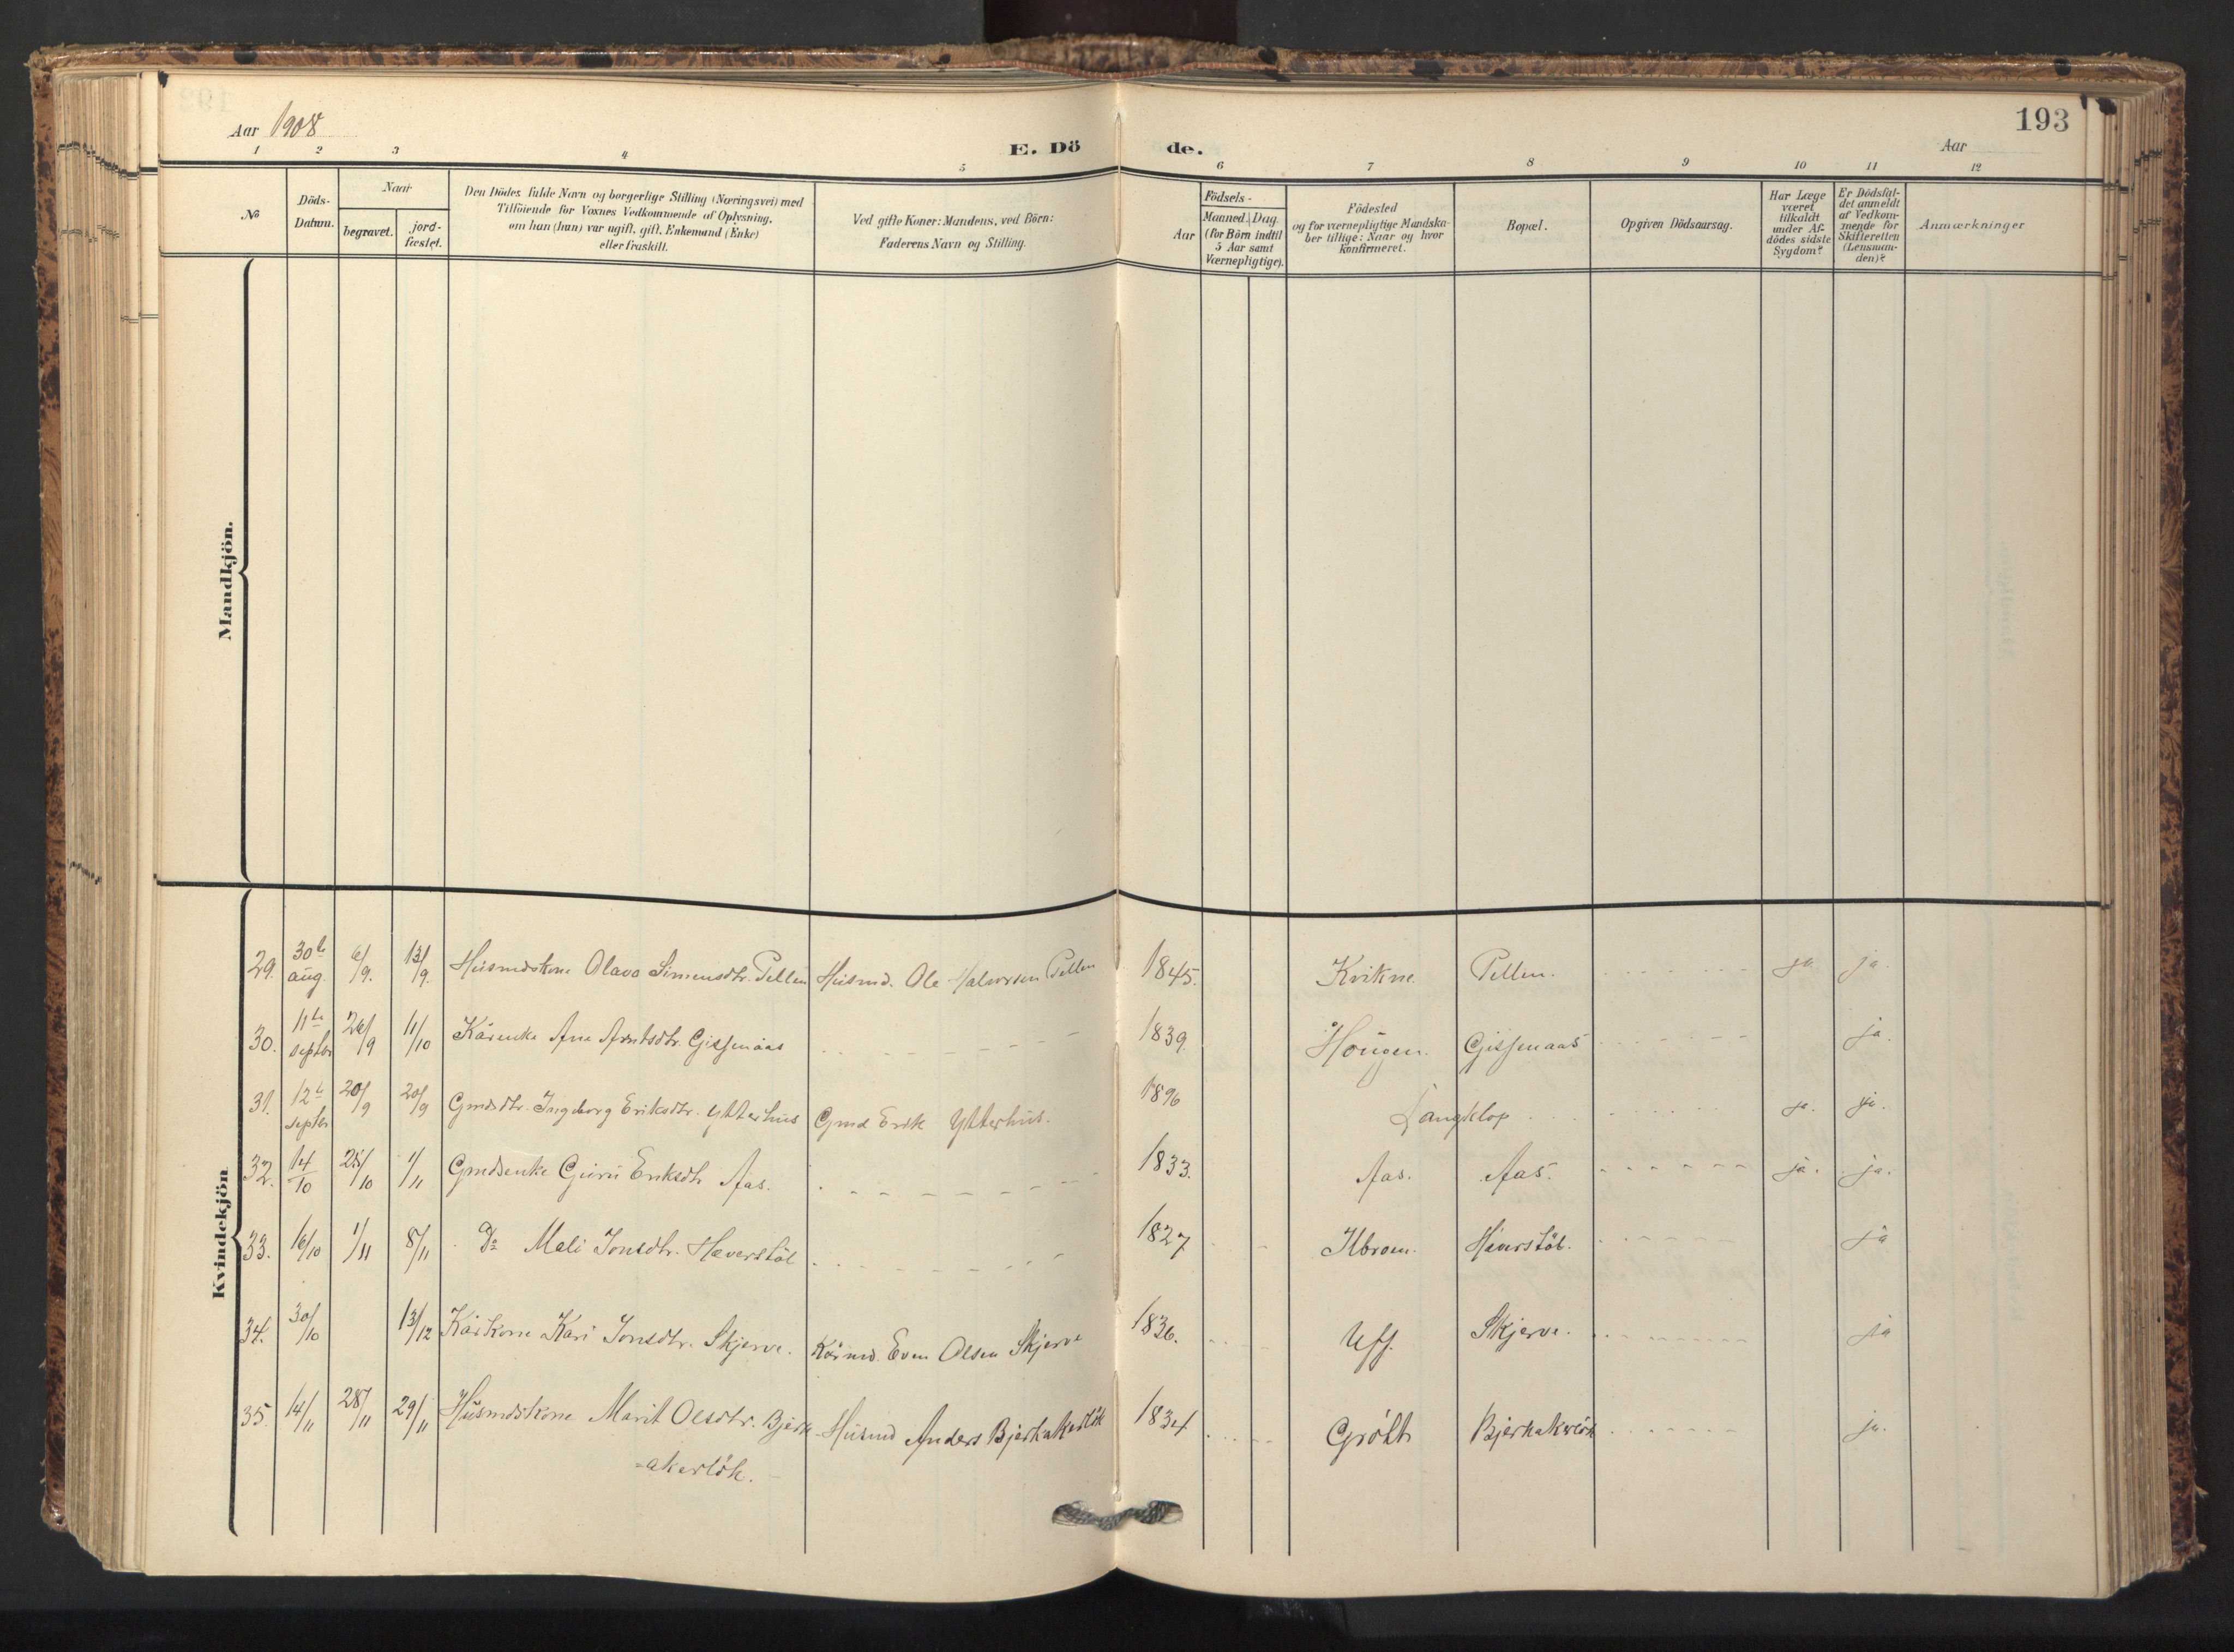 193
Aar 1908
E. Döde.
Aar
1 2 3 4 5 6 7 8 9 10 11 12
No
Döds-Datum.
Naar
begravet.
jord-fæstet.
Den Dödes fulde Navn og borgerlige Stilling (Næringsvei) med
Tilföiende for Voxnes Vedkommende af Oplysning,
om han (hun) var ugift, gift, Enkemand (Enke)
eller fraskilt.
Ved gifte Koner: Mandens, ved Börn:
Faderens Navn og Stilling.
Födsels-
Aar
Maaned. Dag.
(for Börn indtil
5 Aar samt
Værnepligtige).
Födested
og for værnepligtige Mandska-
ber tillige: Naar og hvor
Konfirmeret.
Bopæl.
Opgiven Dödsaarsag.
Har Læge
været
tilkaldt
under Af-
dödes sidste
Sygdom?
Er Dödsfal-
det anmeldt
af Vedkom-
mende for
Skifteretten
(Lensman-
den)?
Anmærkninger
Mandkjön.
Kvindekjön
29. 30te aug. 6/9. 13/9. Husmdskone Olava Simensdtr. Pellen Husmd. Ole Halvorsen Pellen 1845. Kvikne. Pellen. ja ja.
30. 11te septbr 26/9 11/10 Kårenke Ane Arntsdtr. Gissenaas 1839. Hougen. Gissenaas ja.
31. 12te septbr 20/9 20/9 Gmdsdtr. Ingeborg Eriksdtr. Ytterhus Gmd Erik Ytterhus. 1896 Langklop ja. ja.
32. 14/10 25/10 1/11 Gmdsenke Guru Eriksdtr Aas. 1833. Aas. Aas. ja. ja.
33. 16/10 1/11 8/11 Do Mali Jonsdtr. Haverstöl 1827 Haverstöl. ja
34. 30/10 13/12 Kårkone Kari Jonsdtr. Skjerve. Kårmd. Even Olsen Skjerve 1836. Uff. Skjerve. ja
35. 14/11 28/11 29/11 Husmdskone Marit Olsdtr. Bjerk- Husmd Anders Bjerkakerlök 1834 Gröht Bjerkakerlök ja.
=akerlök.